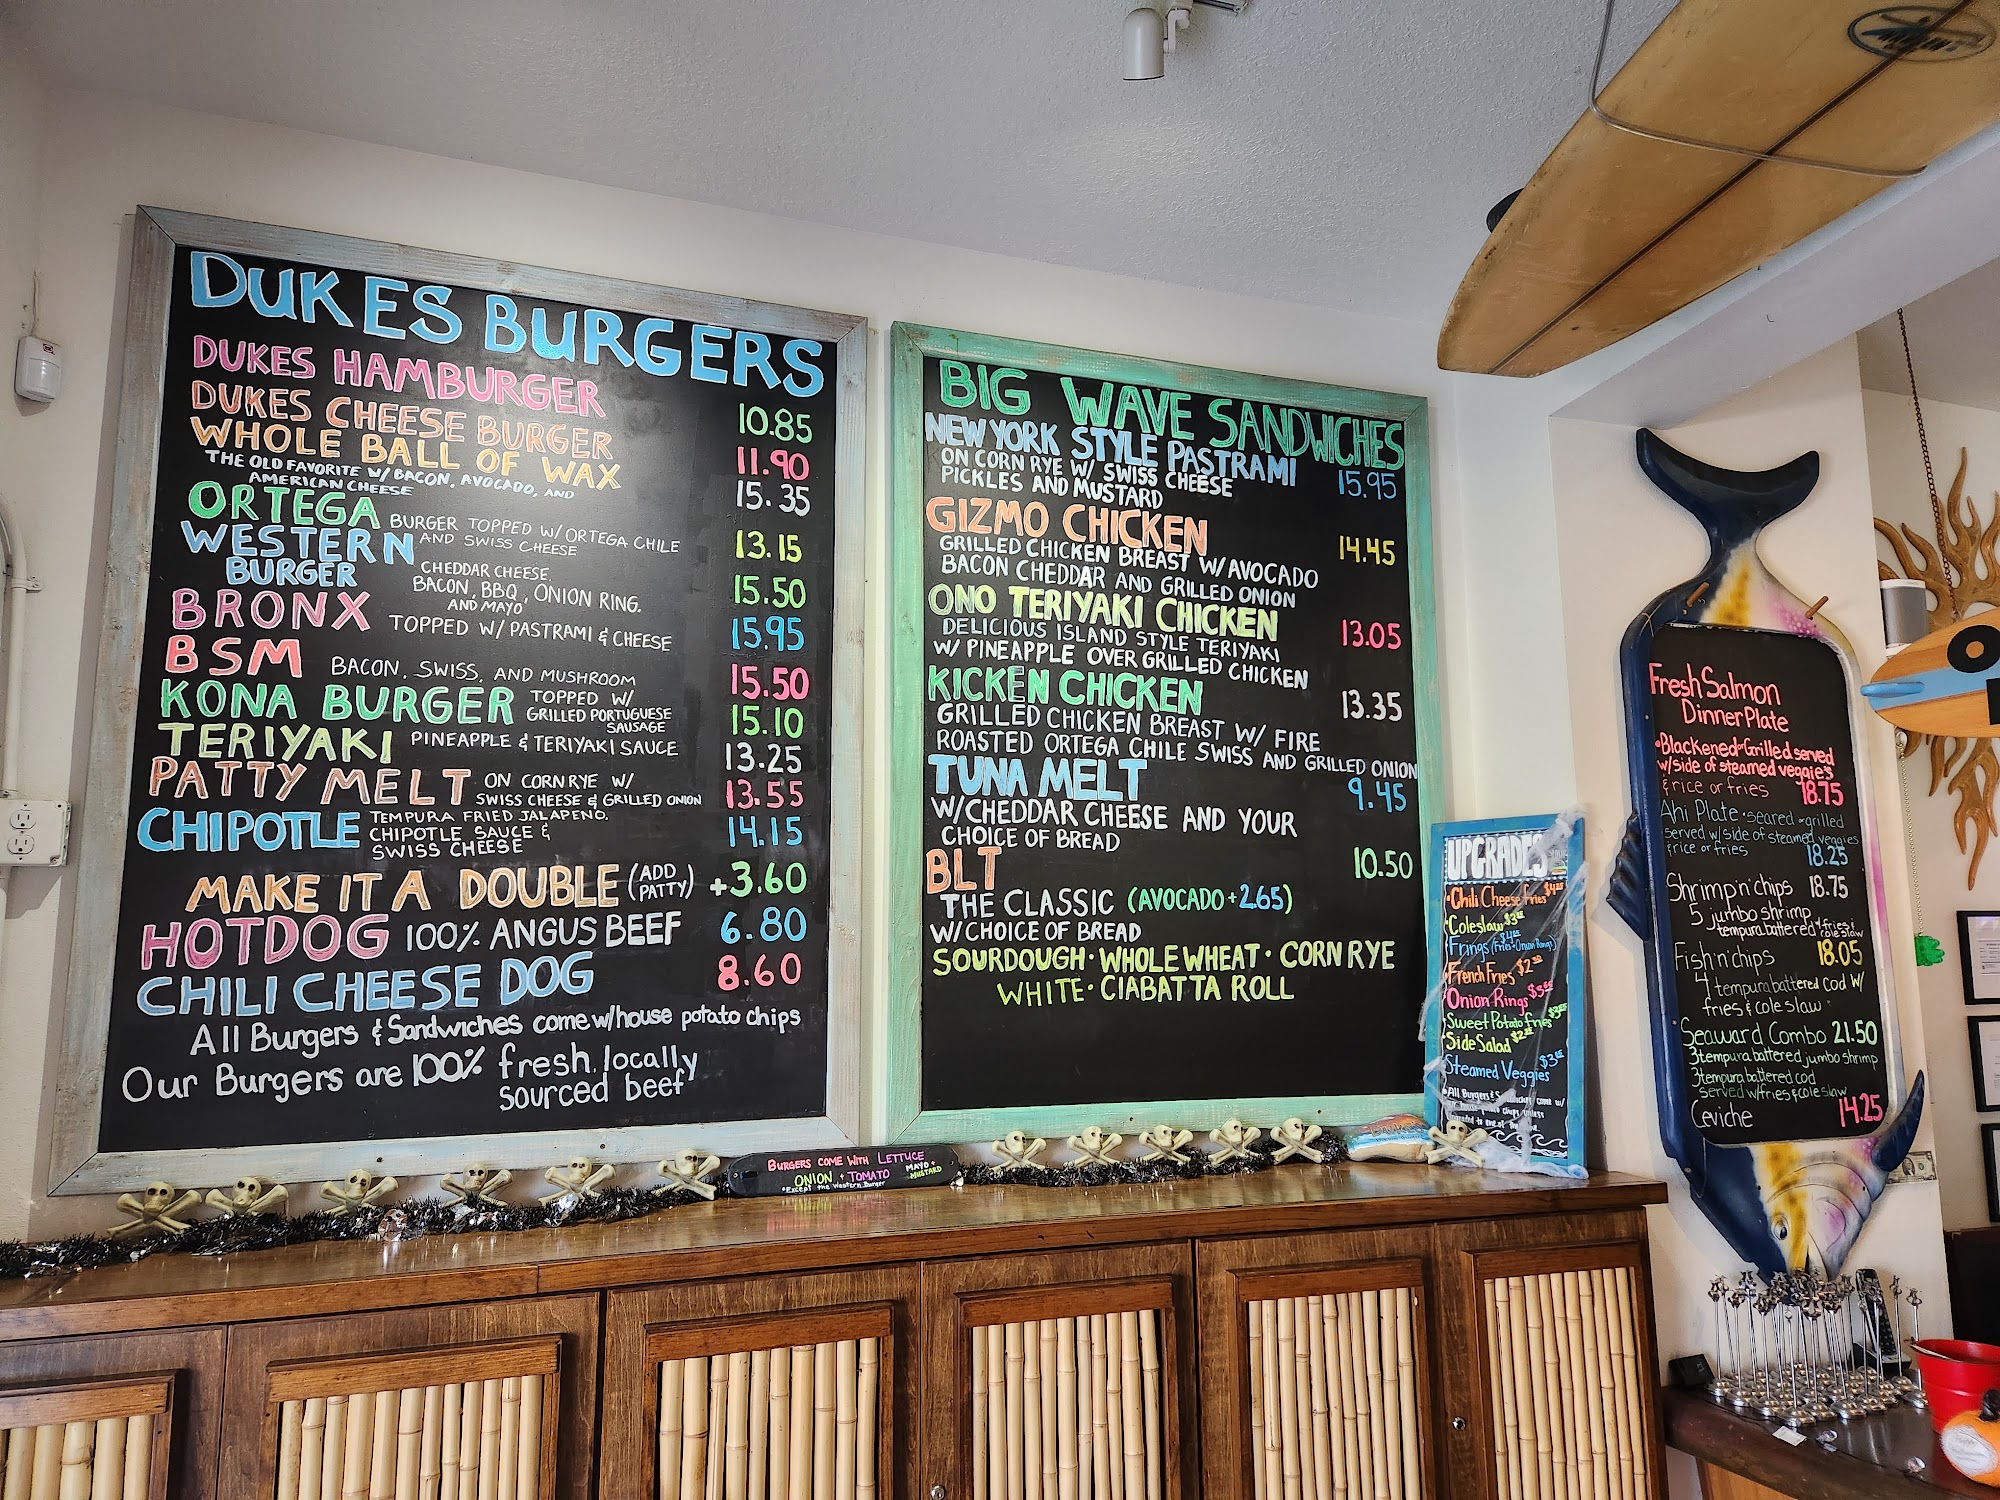 DUKES BURGERS
DUKES HAMBURGER 10.85
DUKES CHEESE BURGER 11.90
WHOLE BALL OF WAX 15.35
THE OLD FAVORITE W/ BACON, AVOCADO, AND
AMERICAN CHEESE
ORTEGA BURGER TOPPED W/ ORTEGA CHILE 13.15
AND SWISS CHEESE
WESTERN BURGER 15.50
CHEDDAR CHEESE,
BACON, BBQ, ONION RING,
AND MAYO
BRONX TOPPED W/ PASTRAMI & CHEESE 15.95
BSM BACON, SWISS, AND MUSHROOM 15.50
KONA BURGER TOPPED W/ 15.10
GRILLED PORTUGUESE
SAUSAGE
TERIYAKI PINEAPPLE & TERIYAKI SAUCE 13.25
PATTY MELT ON CORN RYE W/ 13.55
SWISS CHEESE & GRILLED ONION
CHIPOTLE TEMPURA FRIED JALAPENO, 14.15
CHIPOTLE SAUCE &
SWISS CHEESE
MAKE IT A DOUBLE (ADD PATTY) +3.60
HOTDOG 100% ANGUS BEEF 6.80
CHILI CHEESE DOG 8.60
All Burgers & Sandwiches come w/house potato chips
Our Burgers are 100% fresh, locally
sourced beef
BIG WAVE SANDWICHES
NEW YORK STYLE PASTRAMI 15.95
ON CORN RYE W/ SWISS CHEESE
PICKLES AND MUSTARD
GIZMO CHICKEN 14.45
GRILLED CHICKEN BREAST W/ AVOCADO
BACON CHEDDAR AND GRILLED ONION
ONO TERIYAKI CHICKEN 13.05
DELICIOUS ISLAND STYLE TERIYAKI
W/ PINEAPPLE OVER GRILLED CHICKEN
KICKEN CHICKEN 13.35
GRILLED CHICKEN BREAST W/ FIRE
ROASTED ORTEGA CHILE SWISS AND GRILLED ONION
TUNA MELT 9.45
W/CHEDDAR CHEESE AND YOUR
CHOICE OF BREAD
BLT 10.50
THE CLASSIC (AVOCADO +2.65)
W/CHOICE OF BREAD
SOURDOUGH · WHOLE WHEAT · CORN RYE
WHITE · CIABATTA ROLL
BURGERS COME WITH LETTUCE
ONION + TOMATO MAYO + MUSTARD
*Except the Western Burger
UPGRADES
Chili Cheese Fries
Coleslaw
Frings (Fries + Onion Rings)
French Fries
Onion Rings
Sweet Potato fries
Side Salad
Steamed Veggies
Fresh Salmon
Dinner Plate
Blackened or Grilled served
w/side of steamed veggie's
& rice or fries 18.75
Ahi Plate · seared or grilled
served w/side of steamed veggies
& rice or fries 18.25
Shrimp'n'chips 18.75
5 jumbo shrimp
tempura battered w/fries & coleslaw
Fish'n'chips 18.05
4 tempura battered cod w/
fries & cole slaw
Seaward Combo 21.50
3 tempura battered jumbo shrimp
3 tempura battered cod
served w/fries & cole slaw
Ceviche 14.25